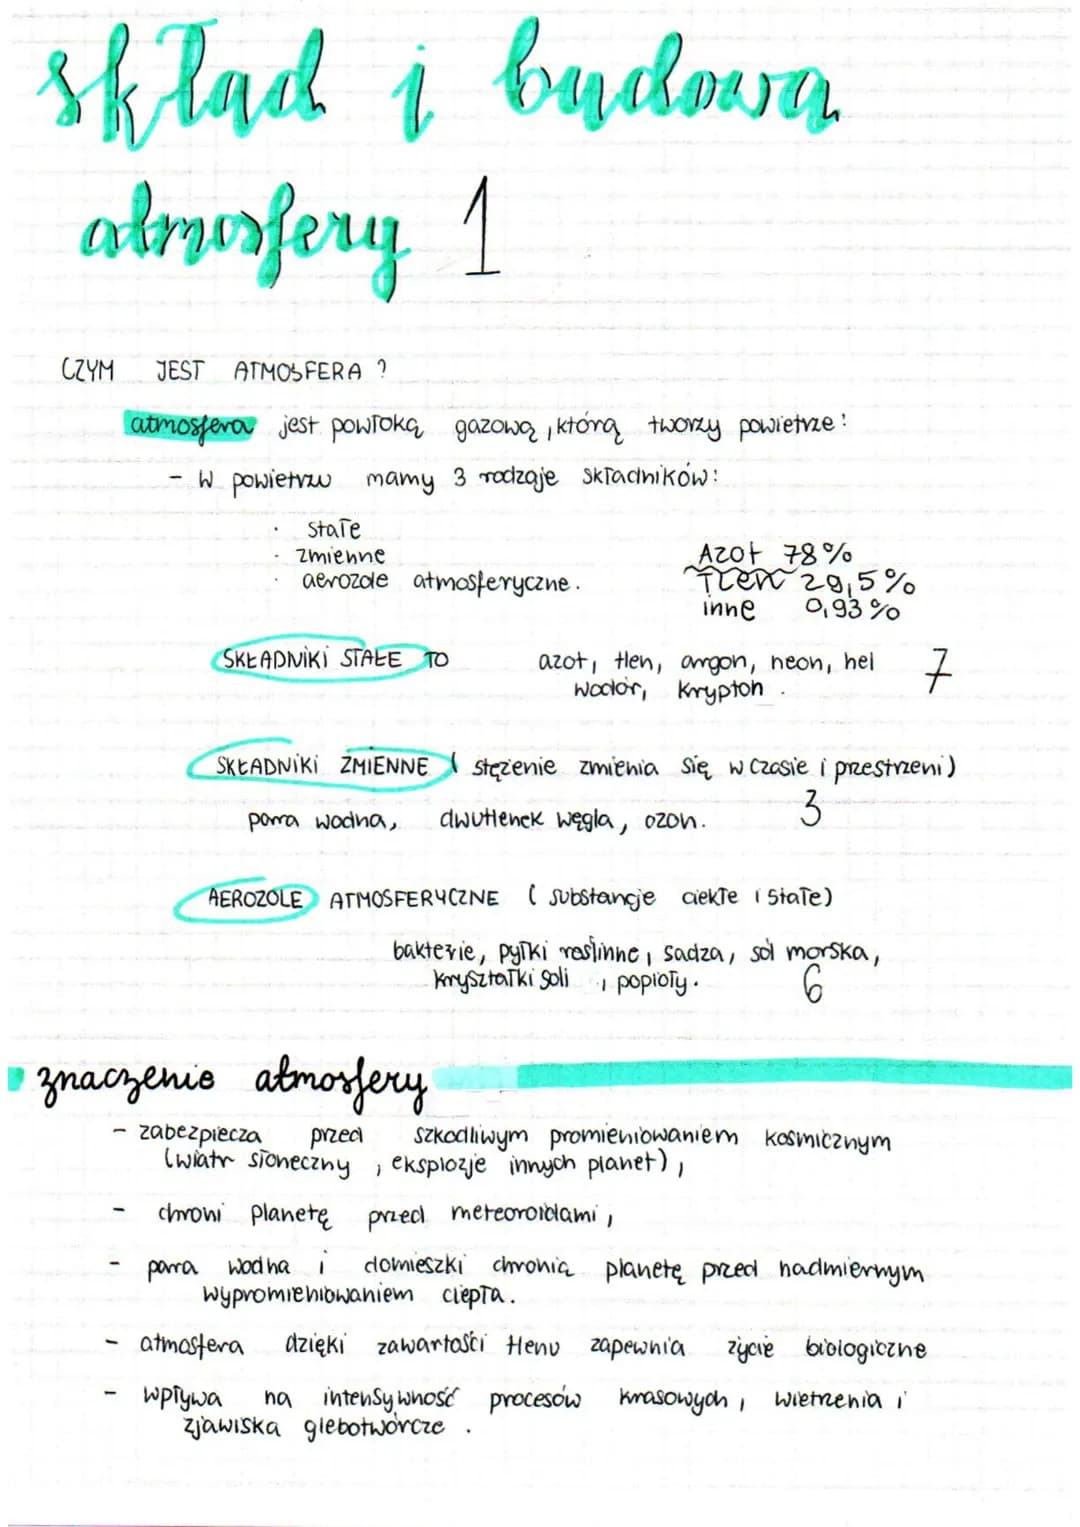 skład i budowa
atmosfery 1
CZYM JEST ATMOSFERA ?
atmosfera jest powłoką gazową, którą tworzy powietrze:
- W powietrzu mamy 3 rodzaje składników:
· stałe
· zmienne
· aerozole atmosferyczne.
Azot 78%
Tlen 29,5%
inne 0,93%
SKŁADNIKI STAŁE TO azot, tlen, argon, neon, hel 7
wodór, krypton.
SKŁADNIKI ZMIENNE ( stężenie zmienia się w czasie i przestrzeni)
para wodna, dwutlenek węgla, ozon. 3
AEROZOLE ATMOSFERYCZNE ( substancje ciekłe i stałe)
bakterie, pyłki roślinne, sadza, sól morska,
kryształki soli , popioły. 6
znaczenie atmosfery
- zabezpiecza przed szkodliwym promieniowaniem kosmicznym
(wiatr słoneczny , eksplozje innych planet),
- chroni planetę przed meteoroidami,
- para wodna i domieszki chronią planetę przed nadmiernym
wypromieniowaniem ciepła.
- atmosfera dzięki zawartości tlenu zapewnia życie biologiczne
- wpływa na intensywność procesów krasowych, wietrzenia i
zjawiska glebotwórcze .